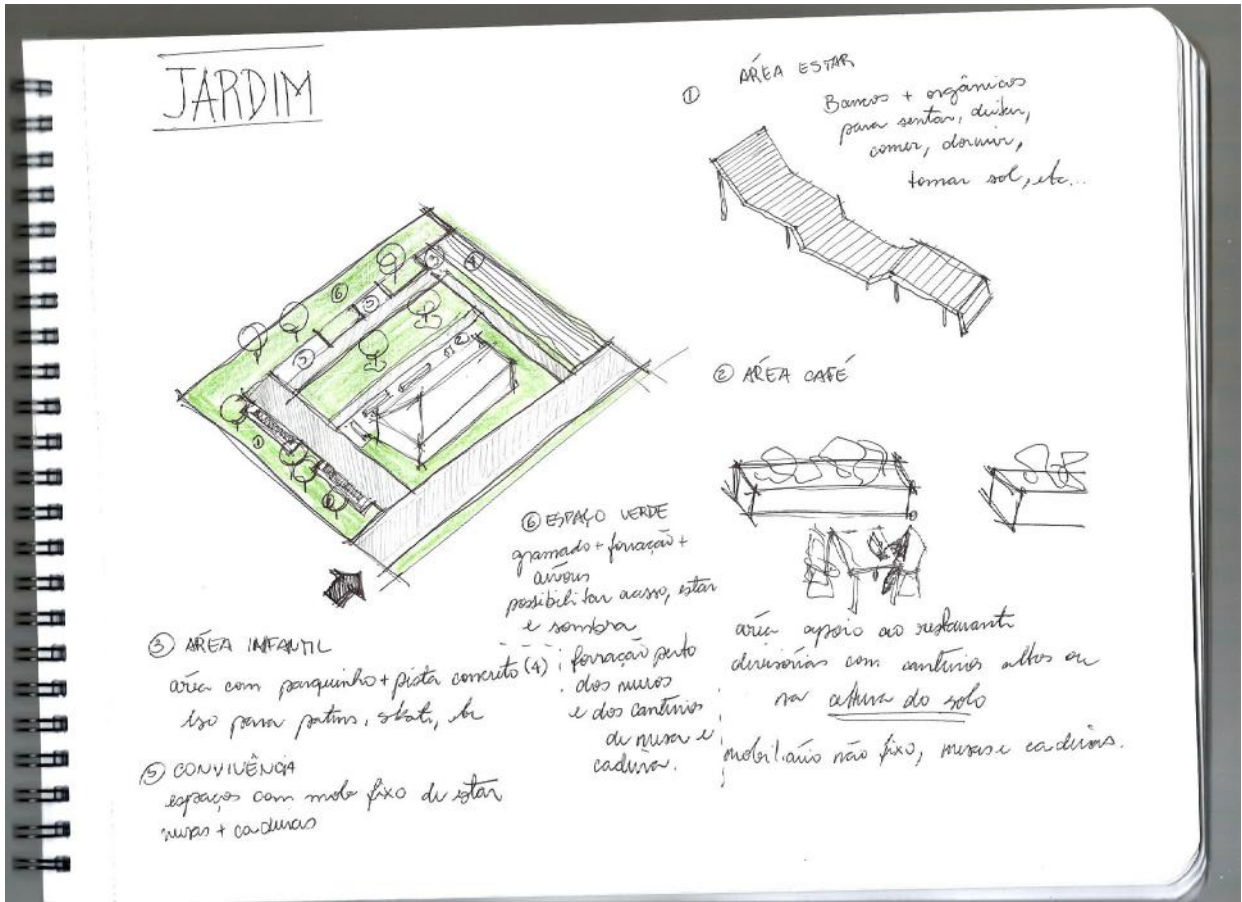 JARDIM
① ÁREA ESTAR
Bancos + orgânicos
para sentar, deitar,
comer, dormir,
tomar sol, etc...
② ÁREA CAFÉ
área apoio ao restaurante
divisórias com canteiros altos ou
na altura do solo
mobiliário não fixo, mesas e cadeiras.
⑥ ESPAÇO VERDE
gramado + forração +
árvores
possibilitar acesso, estar
e sombra
forração perto
dos muros
e dos canteiros
de mesa e
cadeira.
③ ÁREA INFANTIL
área com parquinho + pista concreto (4)
liso para patins, skate, etc
⑤ CONVIVÊNCIA
espaços com mob fixo de estar
mesas + cadeiras